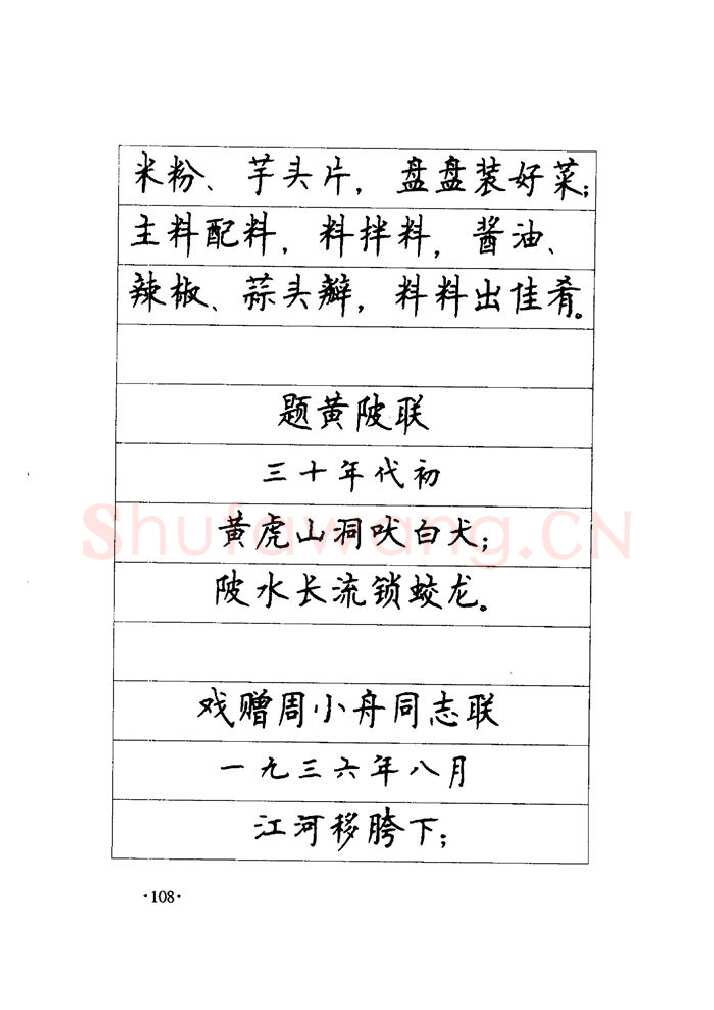 米粉、芋头片，盘盘装好菜；
主料配料，料拌料，酱油、
辣椒、蒜头瓣，料料出佳肴。
题黄陂联
三十年代初
黄虎山洞吠白犬；
陂水长流锁蛟龙。
戏赠周小舟同志联
一九三六年八月
江河移胯下；
·108·
Shufawang.CN